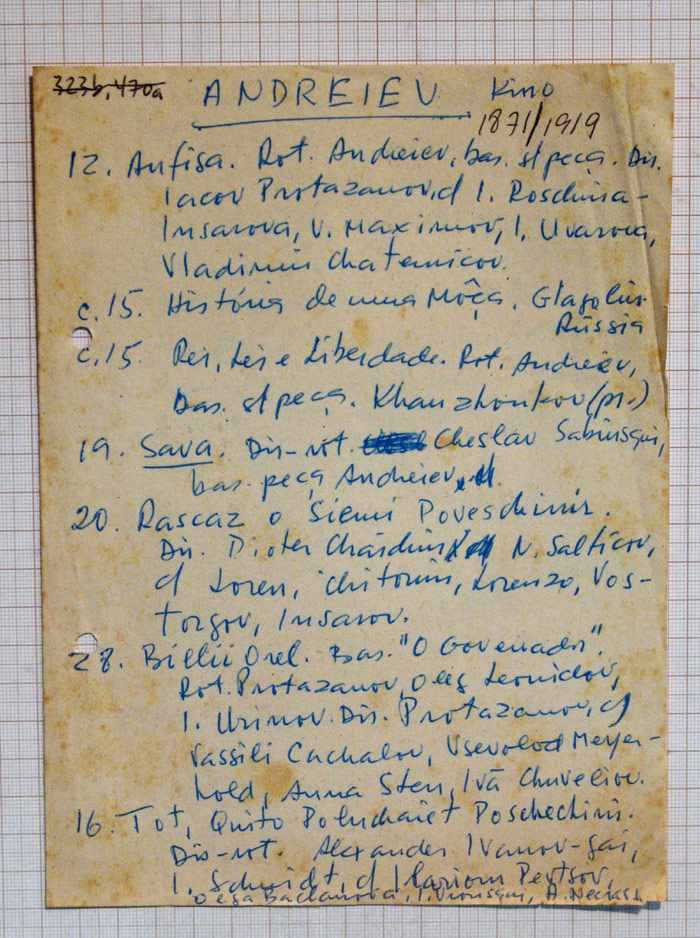 323b, 470a
ANDREIEV Kino
1871/1919
12. Anfisa. Rot. Andreiev, bas. s/peça. Dir.
Iacov Protazanov, c/ I. Roschina-
Insarova, V. Maximov, I. Uvarova,
Vladimir Chaternicov.
c.15. História de uma Môça. Glagolin.
Rússia
c.15. Rei, Lei e Liberdade. Rot. Andreiev,
bas. s/peça. Khanzhonkov (pr.)
19. Sava. Dir-rot. Cheslav Sabinsqui,
bas. peça Andreiev.
20. Rascaz o Siemi Poveschinir.
Dir. Piotr Chardin N. Salticov,
c/ Loren, Chitorin, Lorenzo, Vos-
torgov, Insarov.
28. Bielii Orel. Bas. "O Governador".
Rot. Protazanov, Oleg Leonidov,
I. Urinov. Dir. Protazanov, c/
Vassili Cachalov, Vsevolod Meyer-
hold, Anna Sten, Ivã Chuveliov.
16. Tot, Quito Poluchaiet Poschechini.
Dir-rot. Alexander Ivanov-gai,
I. Schmidt, c/ Ilariom Pevtsov,
Olga Baclanova, I. Vronsqui, A.